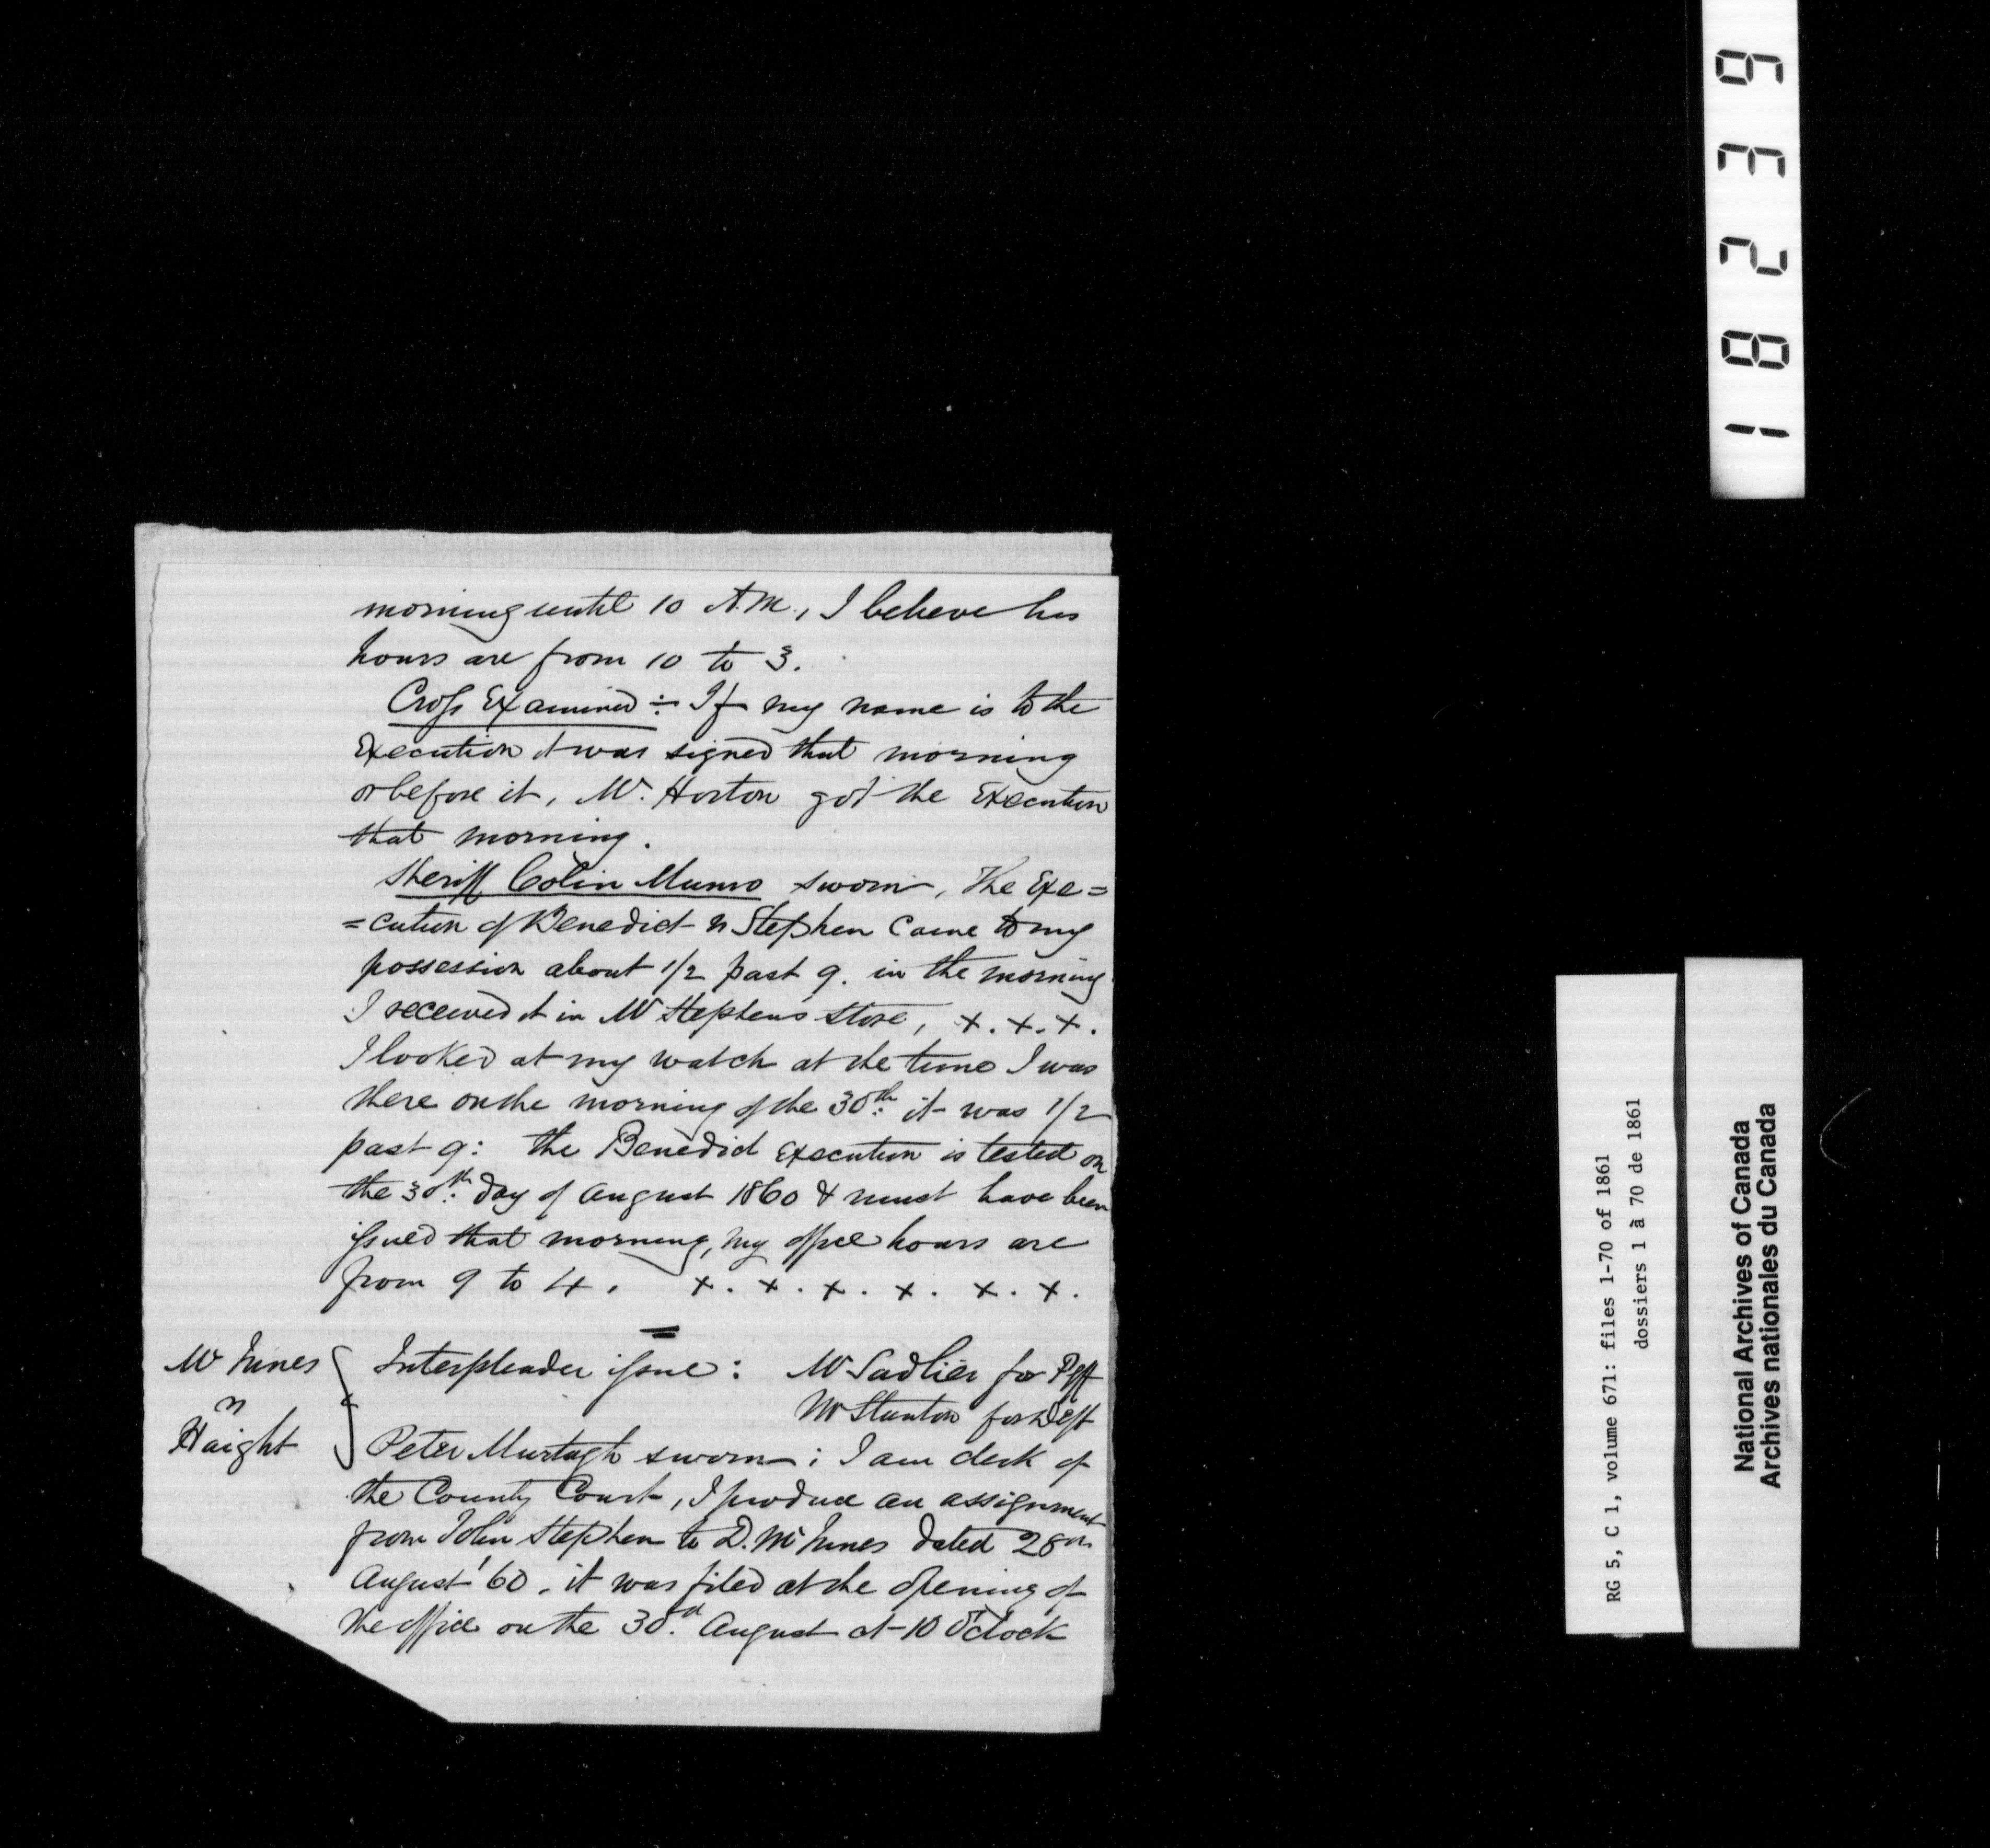 morning until 10 A.M., I believe his
hours are from 10 to 3.
Cross Examined ÷ If my name is to the
Execution it was signed that morning
or before it, Mr. Horton got the Execution
that morning.
Sheriff Colin Munro sworn, The Exe=
=cution of Benedict v Stephen came to my
possession about 1/2 past 9. in the morning
I received it in Mr Stephens store, x. x. x.
I looked at my watch at the time I was
there on the morning of the 30th: it was 1/2
past 9: the Benedict Execution is tested on
the 30th: day of August 1860 & must have been
issued that morning, my office hours are
from 9 to 4. x. x. x. x. x. x.
McInnes
v
Haight
Interpleader issue: Mr Sadlier for Plff
Mr Stanton for Deft
Peter Murtagh sworn: I am clerk of
the County Court, I produce an assignment
from John Stephen to D. McInnes dated 28th
August '60. it was filed at the opening of
the office on the 30th. August at 10 O'Clock
18239
RG 5, C 1, volume 671: files 1-70 of 1861
dossiers 1 à 70 de 1861
National Archives of Canada
Archives nationales du Canada